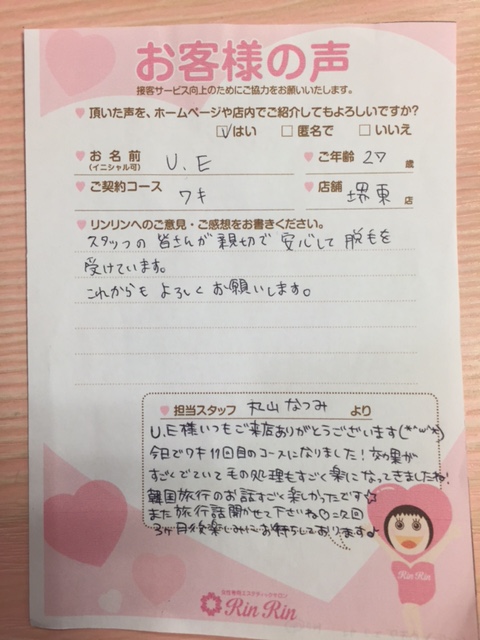 お客様の声
接客サービス向上のためにご協力をお願いいたします。
♥ 頂いた声を、ホームページや店内でご紹介してもよろしいですか?
☑はい □匿名で □いいえ
♥ お名前 (イニシャル可) U.E ♥ ご年齢 27 歳
♥ ご契約コース ワキ ♥ 店舗 堺東 店
♥ リンリンへのご意見・ご感想をお書きください。
スタッフの皆さんが親切で安心して脱毛を
受けています。
これからもよろしくお願いします。
♥ 担当スタッフ 丸山なつみ より
U.E様いつもご来店ありがとうございます(*^ω^*)
今日でワキ11回目のコースになりました!効果が
すごくでていて毛の処理もすごく楽になってきましたね!
韓国旅行のお話すごく楽しかったです☆
また旅行話聞かせて下さいね♡次回
3か月後楽しみにお待ちしております♪
RIN RIN
女性専用エステティックサロン
Rin Rin